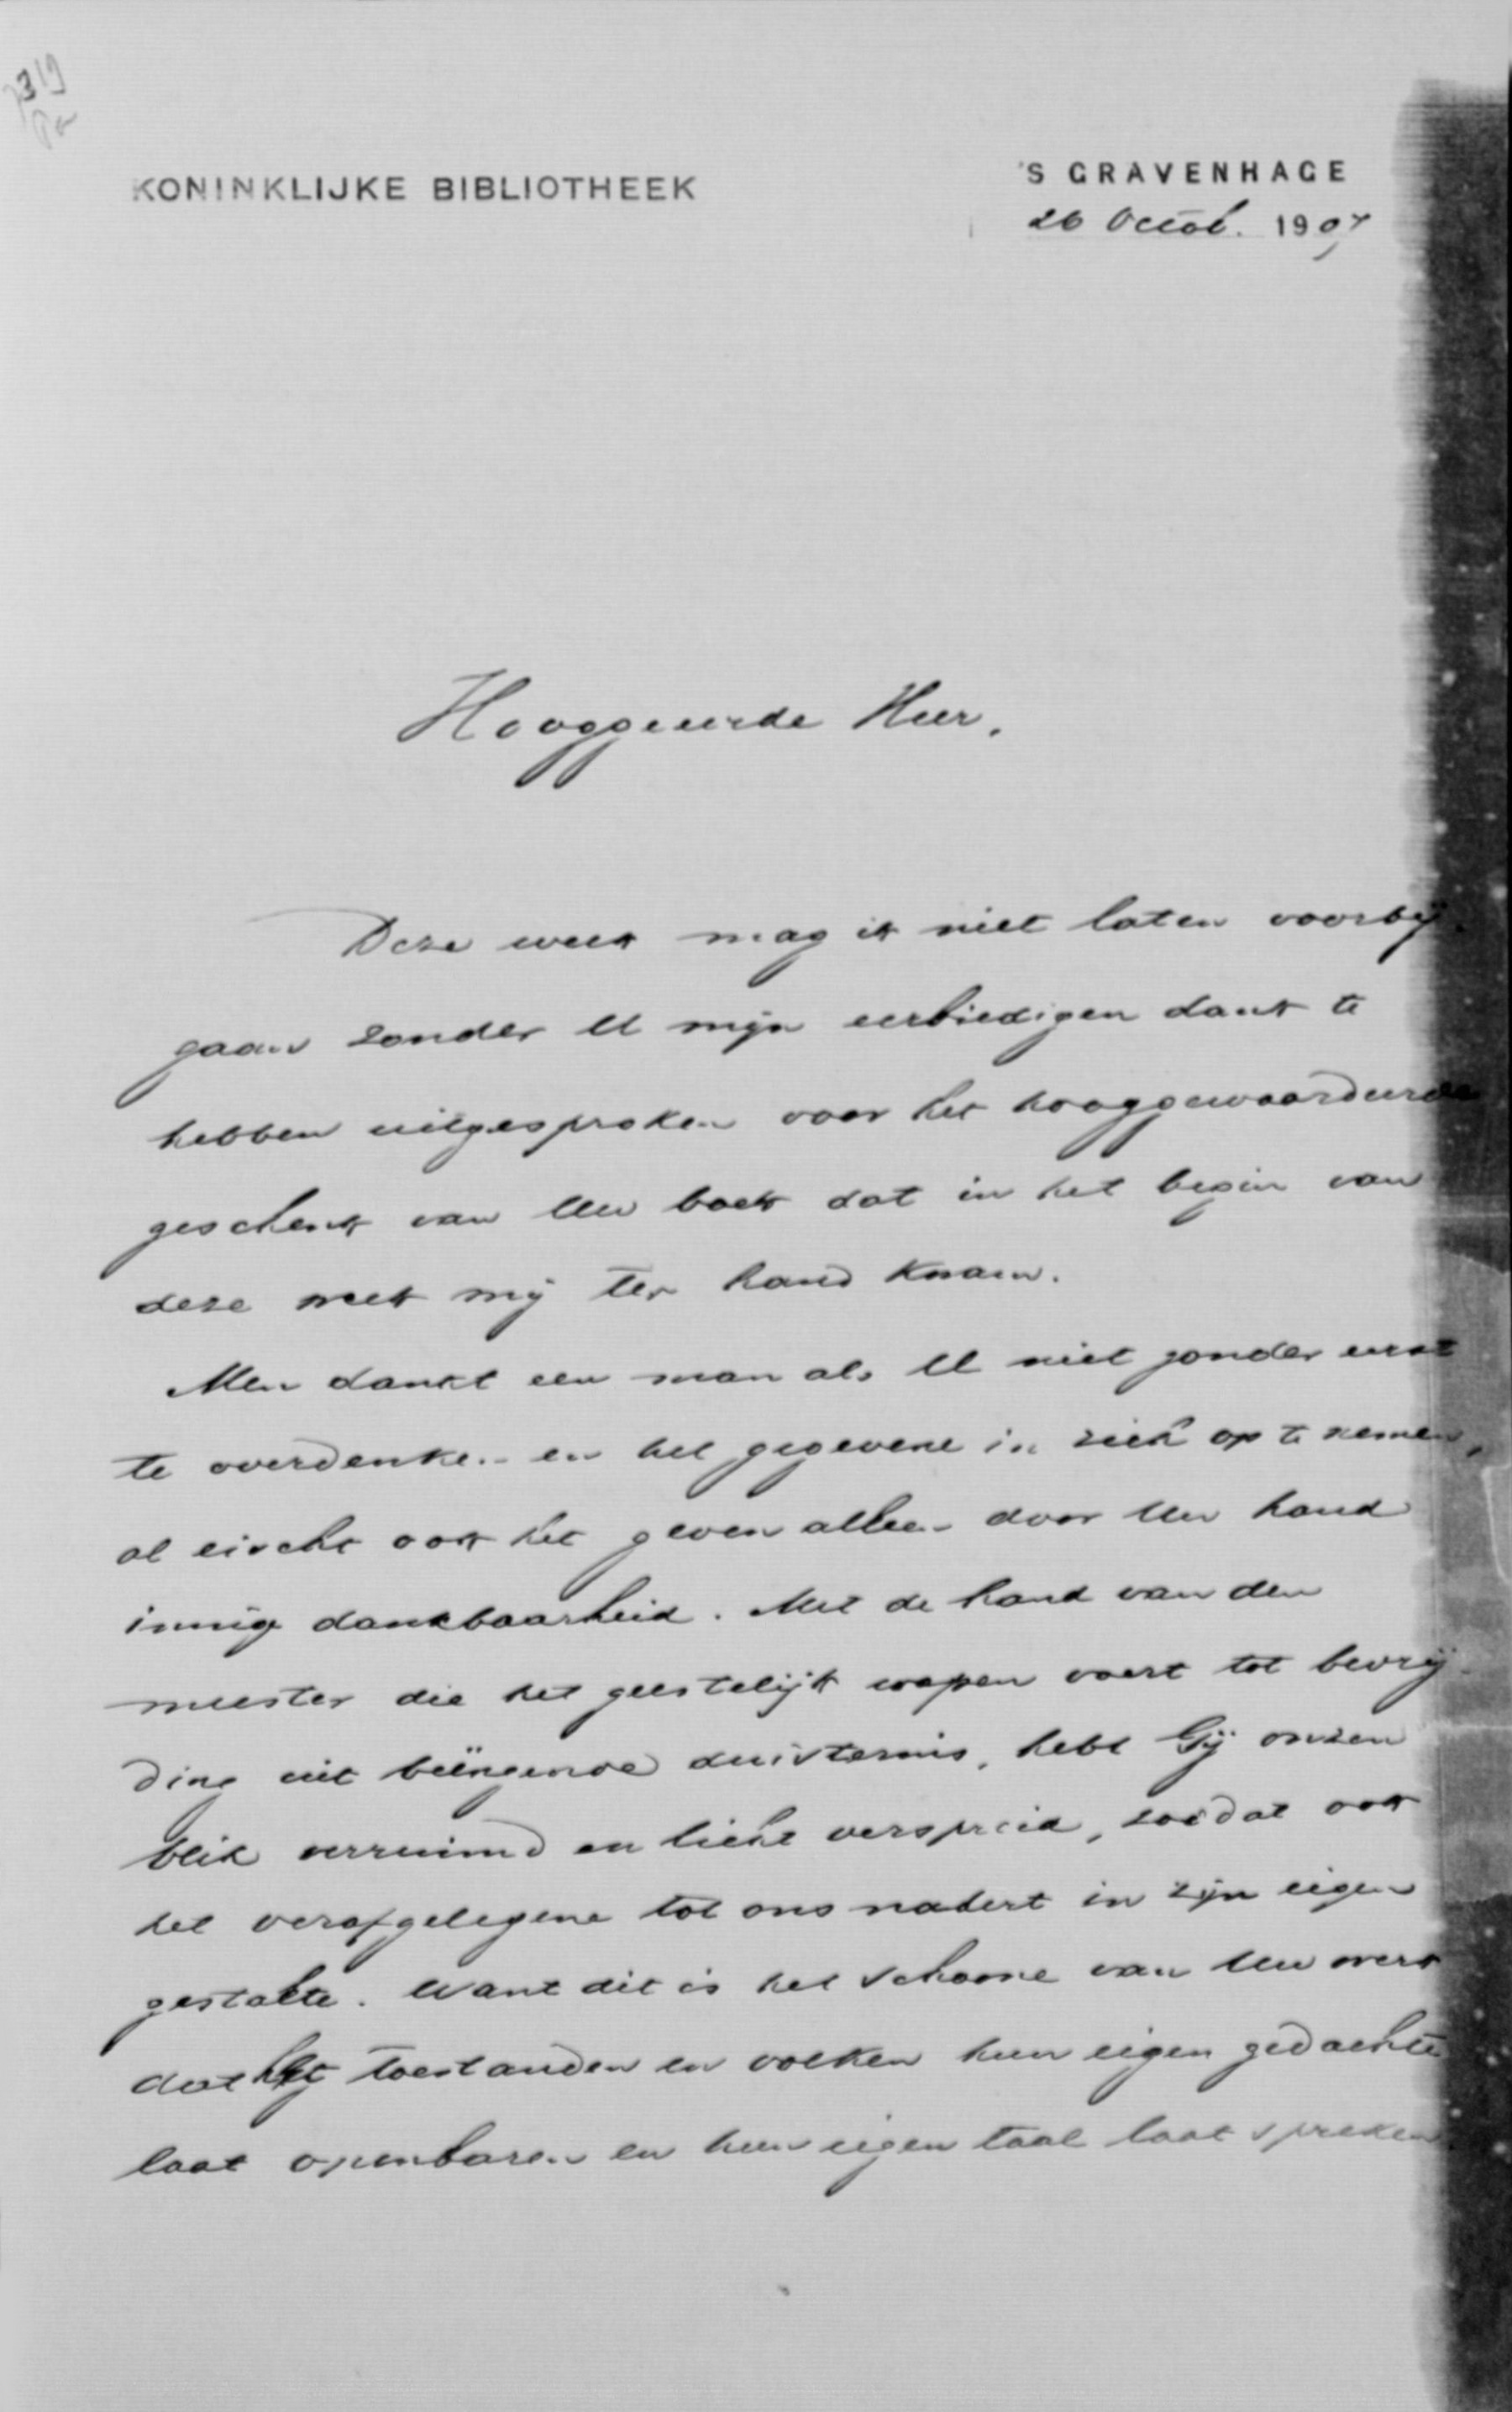 KONINKLIJKE BIBLIOTHEEK
'S GRAVENHAGE
26 Octob. 1907
Hooggeeerde Heer,
Deze week mag ik niet laten voorbij
gaan zonder U mijn eerbiedigen dank te
hebben uitgesproken voor het hooggewaardeerde
geschenk van Uw boek dat in het begin van
deze week mij ter hand kwam.
Men dankt een man als U niet zonder eerst
te overdenken en het gegevene in zich op te nemen,
al eischt ook het geven alleen door Uw hand
innige dankbaarheid. Met de hand van den
meester die het geestelijk wapen voert tot bevrij-
ding uit duisternis, hebt Gij onzen
blik verruimd en licht verspreid, zoodat ook
het verafgelegene tot ons nadert in zijn eigen
gestalte. Want dit is het schoone van Uw werk
dat het toestanden en volken hun eigen gedachte
laat openbaren en hun eigen taal laat spreken